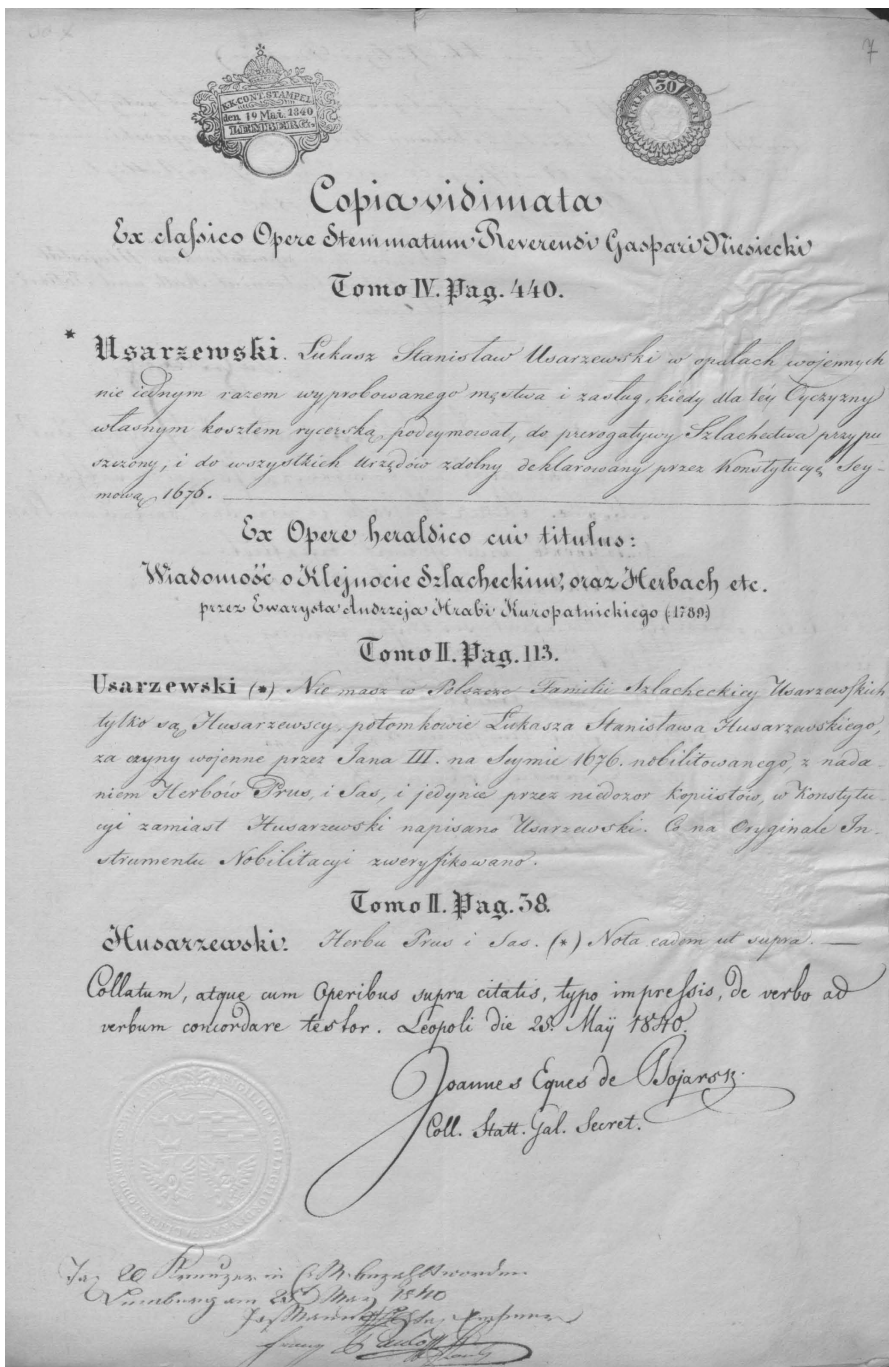 7
K.K.CONT.STAMPEL
den 19 Mai. 1840
LEMBERG.
30
Copia vidimata
Ex classico Opere Stemmatum Reverendi Gaspari Niesiecki
Tomo IV. Pag. 440.
* Usarzewski. Łukasz Stanisław Usarzewski w opałach wojennych
nie iednym razem wyprobowanego męstwa i zasług, kiedy dla téy Oyczyzny
własnym kosztem rycerską podeymował, do prerogatywy Szlachectwa przypu
szczony, i do wszystkich Urzędów zdolny deklarowany przez Konstytucyą Sey-
mową 1676.
Ex Opere heraldico cui titulus:
Wiadomość o Klejnocie Szlacheckim, oraz Herbach etc.
przez Ewarysta Andrzeja Hrabi Kuropatnickiego (1789)
Tomo II. Pag. 113.
Usarzewski (*) Nie masz w Polszcze Familii Szlacheckiey Usarzewskich
tylko są Husarzewscy, potomkowie Łukasza Stanisława Husarzewskiego,
za czyny wojenne przez Jana III. na Seymie 1676. nobilitowanego, z nada-
niem Herbów Prus, i Sas, i jedynie przez niedozor Kopiistów, w Konstytu-
cyi zamiast Husarzewski napisano Usarzewski. Co na Oryginale In-
strumentu Nobilitacyi zweryfikowano.
Tomo II. Pag. 38.
Husarzewski. Herbu Prus i Sas. (*) Nota eadem ut supra.
Collatum, atque cum Operibus supra citatis, typo impressis, de verbo ad
verbum concordare testor. Leopoli die 25. Maÿ 1840.
Joannes Eques de Bojarsk.
Coll. Statt. Gal. Secret.
Tax 20 Kreuzer in C.M. bezahlt worden
Lemberg am 25 May 1840